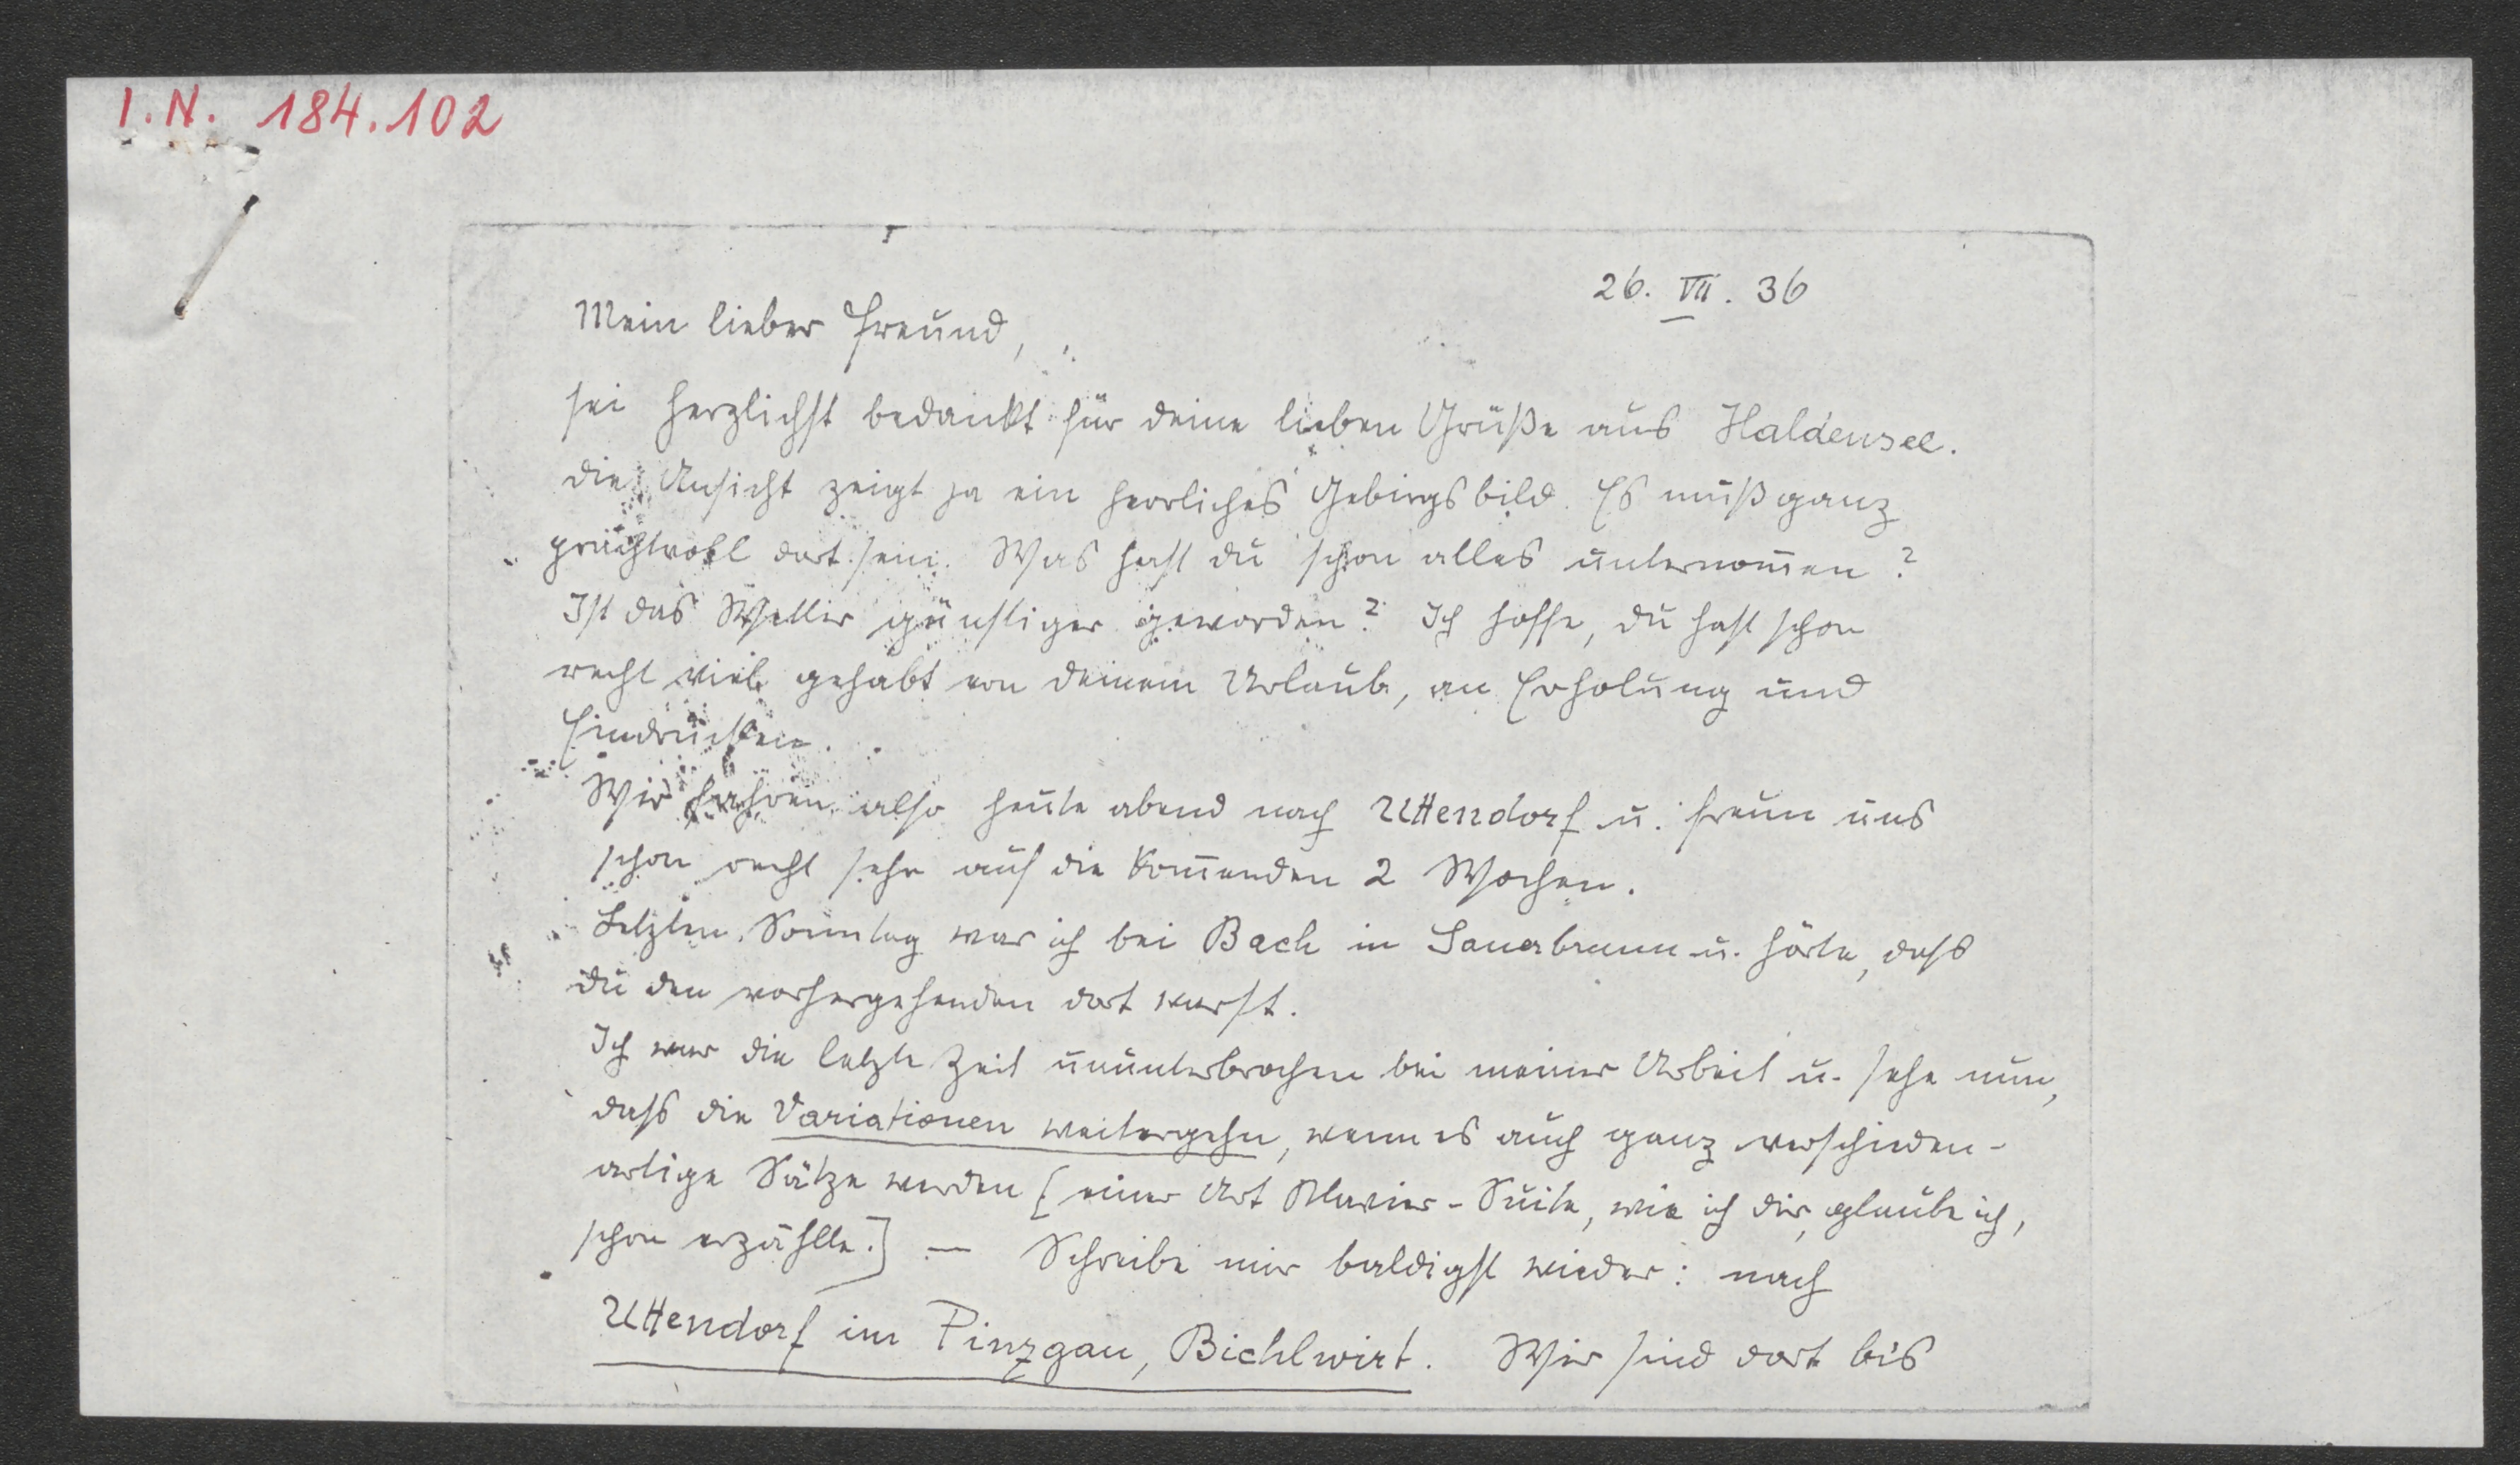 I.N. 184.102
26. VII. 36
Mein lieber Freund,
sei herzlichst bedankt für deine lieben Grüße aus Haldensee.
die Ansicht zeigt ja ein herrliches Gebirgsbild. Es muß ganz
prachtvoll dort sein. Was hast du schon alles unternom̄en?
Ist das Wetter günstiger geworden? Ich hoffe, du hast schon
recht viel gehabt von deinem Urlaub, an Erholung und
Eindrücken.
Wir fahren also heute abend nach Uttendorf u. freun uns
schon recht sehr auf die kom̄enden 2 Wochen.
Letzten Sonntag war ich bei Bach in Sauerbrunn u. hörte, dass
du den vorhergehenden dort warst.
Ich war die letzte Zeit ununterbrochen bei meiner Arbeit u. sehe nun,
dass die Variationen weitergehn, wenn es auch ganz verschieden-
artige Sätze werden [einer Art Klavier-Suite, wie ich dir, glaube ich,
schon erzählte.] — Schreibe mir baldigst wieder: nach
Uttendorf im Pinzgau, Bichlwirt. Wir sind dort bis